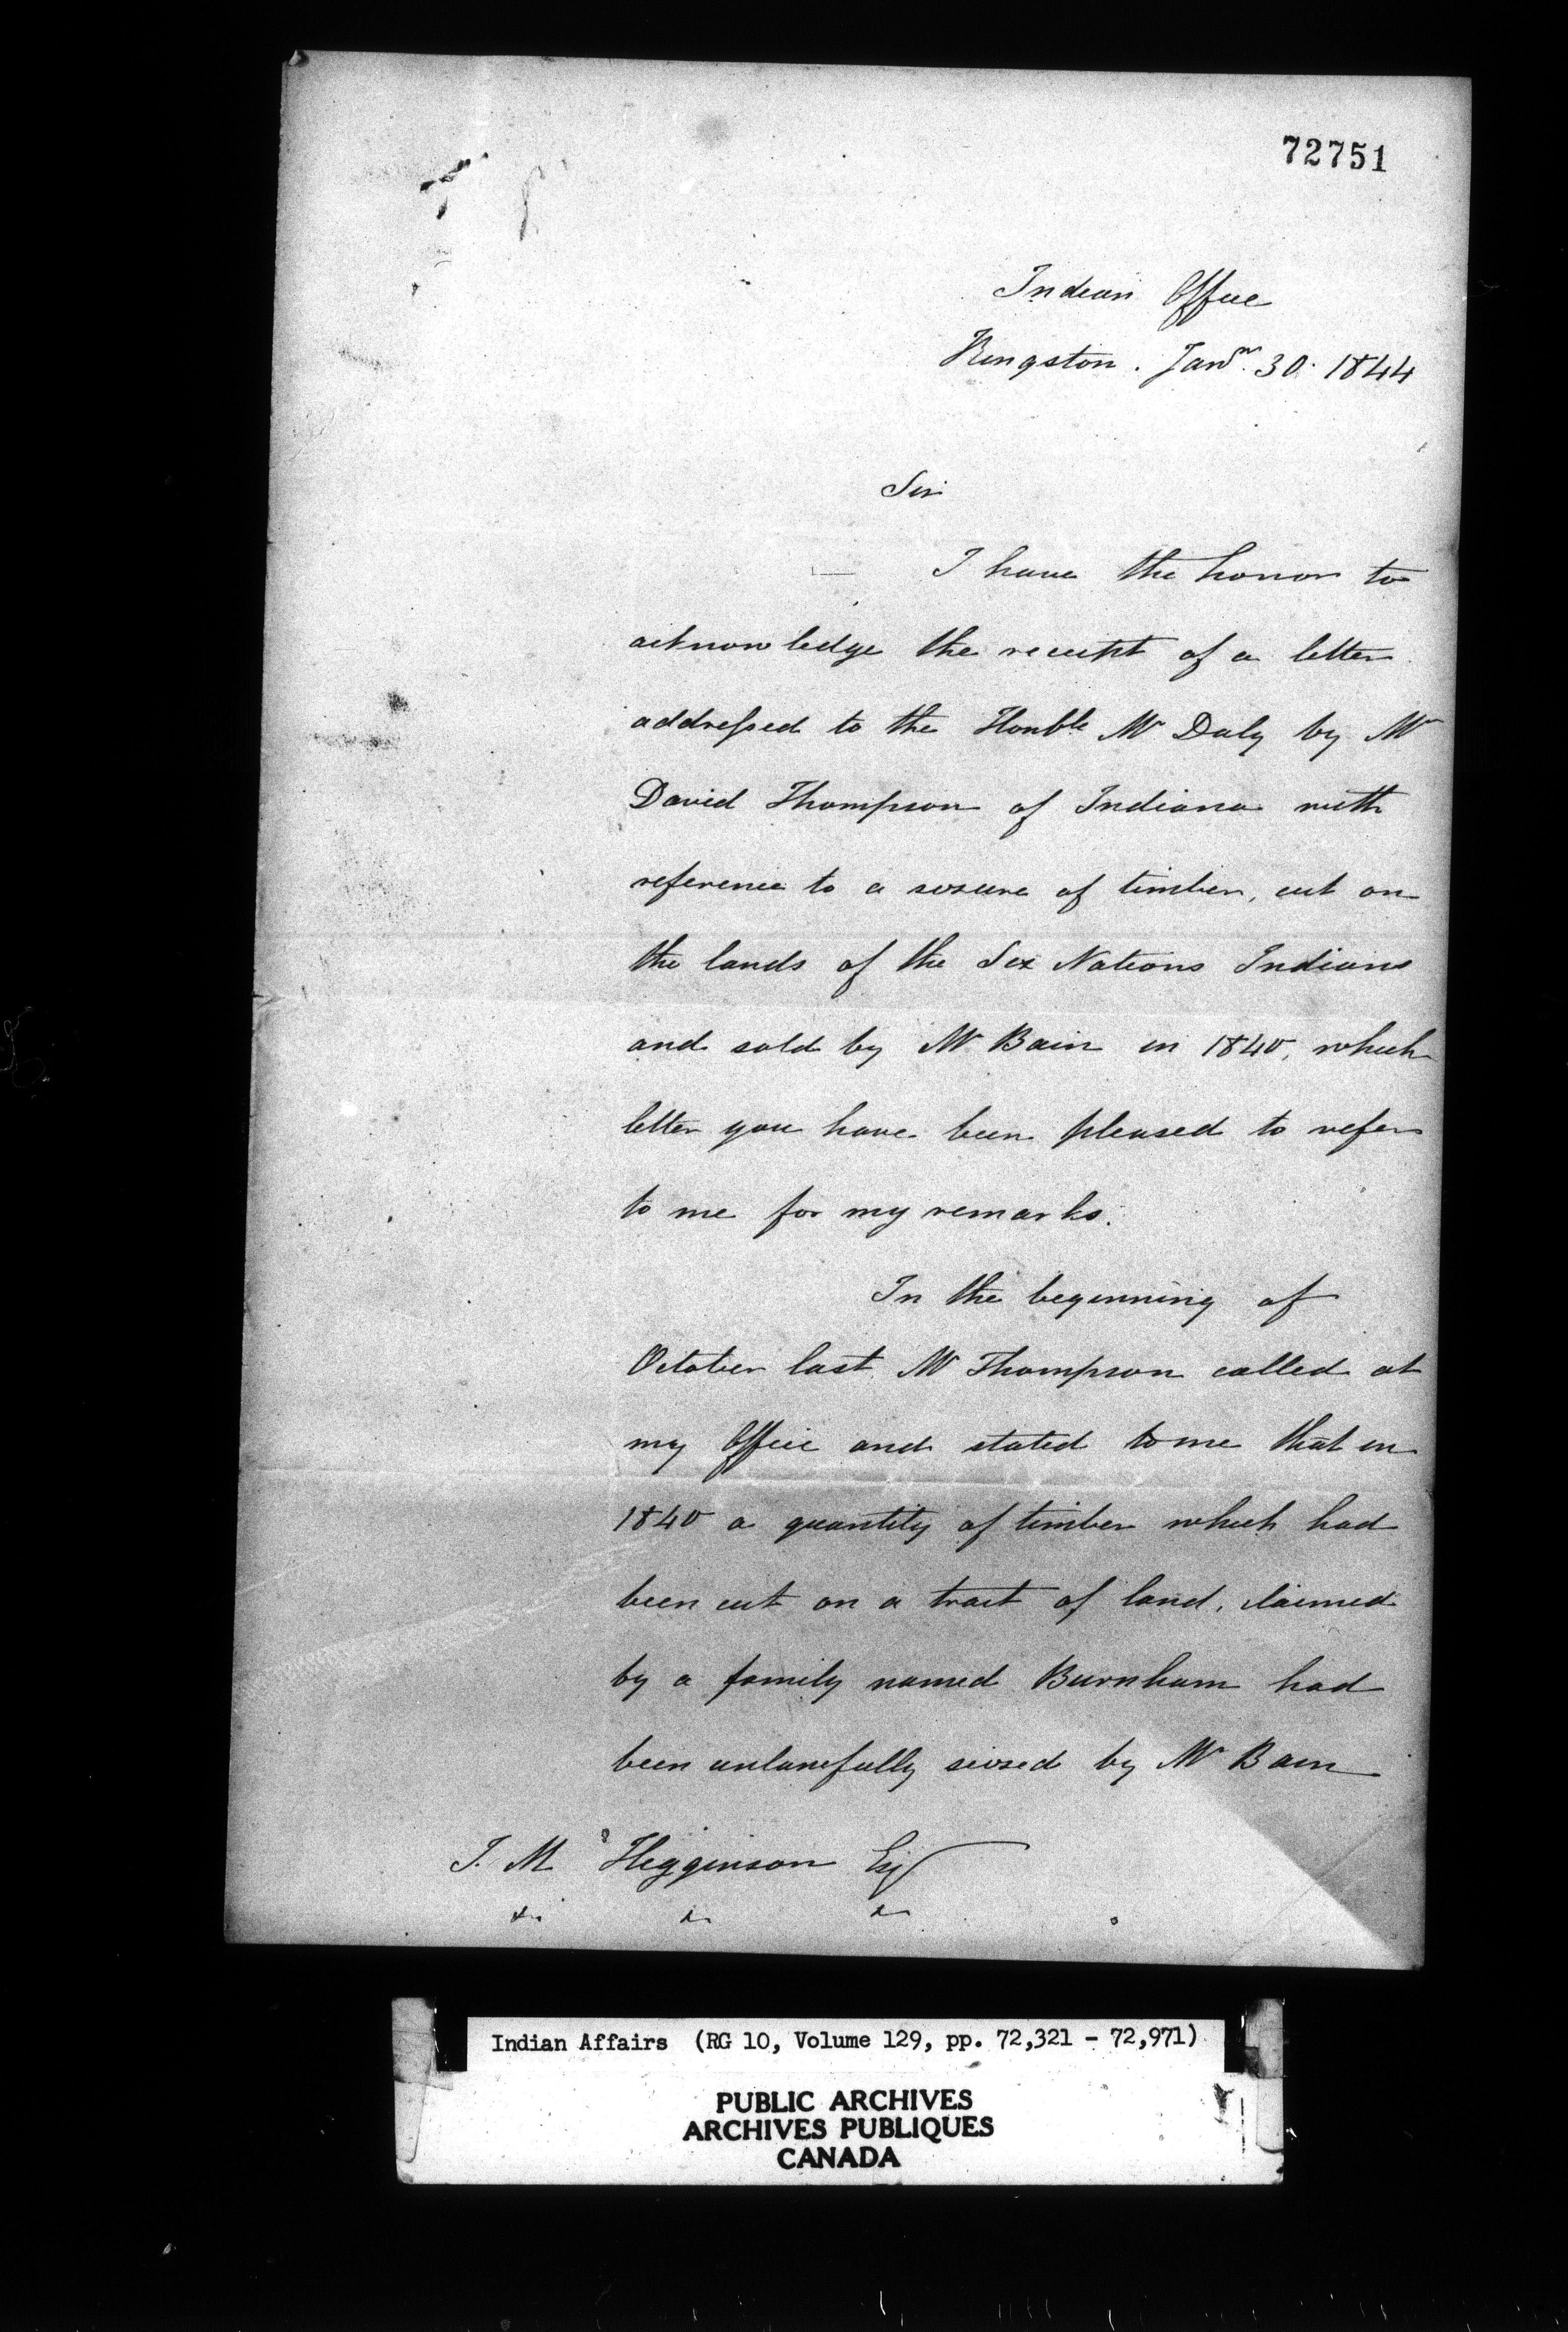 72751
Indian Office
Kingston. Jany. 30. 1844
Sir
I have the honor to
acknowledge the receipt of a letter
addressed to the Honble Mr Daly by Mr
David Thompson of Indiana with
reference to a seizure of timber, cut on
the lands of the Six Nations Indians
and sold by Mr Bain in 1840, which
letter you have been pleased to refer
to me for my remarks.
In the beginning of
October last Mr Thompson called at
my Office and stated to me that in
1840 a quantity of timber which had
been cut on a tract of land, claimed
by a family named Burnham had
been unlawfully seized by Mr Bain
J. M. Higginson Esq
Indian Affairs (RG 10, Volume 129, pp. 72,321 - 72,971)
PUBLIC ARCHIVES
ARCHIVES PUBLIQUES
CANADA